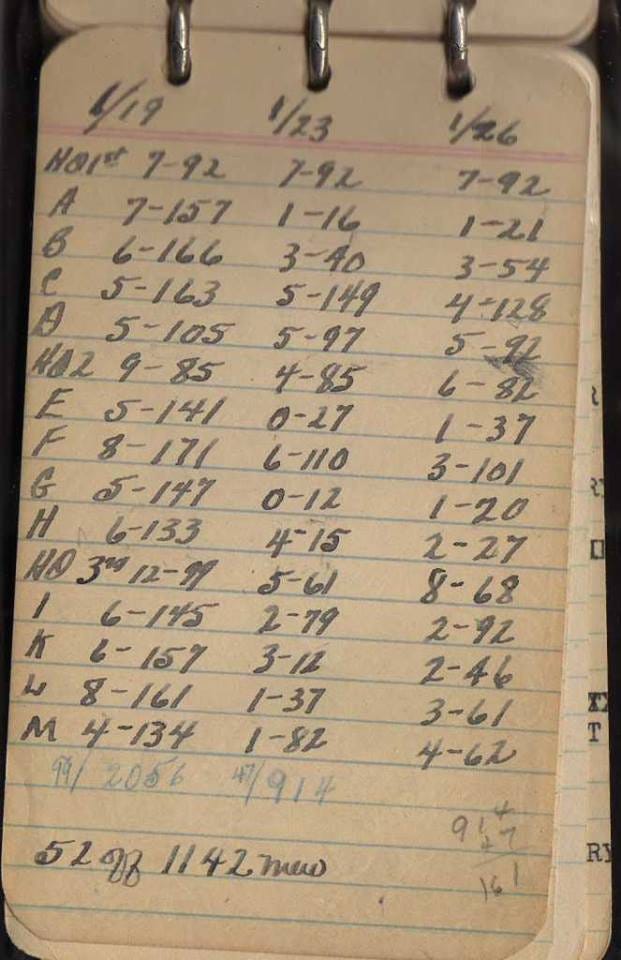 1/19 1/23 1/26
HQ 1st 7-92 7-92 7-92
A 7-157 1-16 1-21
B 6-166 3-40 3-54
C 5-163 5-149 4-128
D 5-105 5-97 5-92
HQ 2 9-85 4-85 6-82
E 5-141 0-27 1-37
F 8-171 6-110 3-101
G 5-147 0-12 1-20
H 6-133 4-15 2-27
HQ 3rd 12-99 5-61 8-68
I 6-145 2-79 2-92
K 6-157 3-12 2-46
L 8-161 1-37 3-61
M 4-134 1-82 4-62
99/2056 47/914
914
47
961
52 off 1142 men